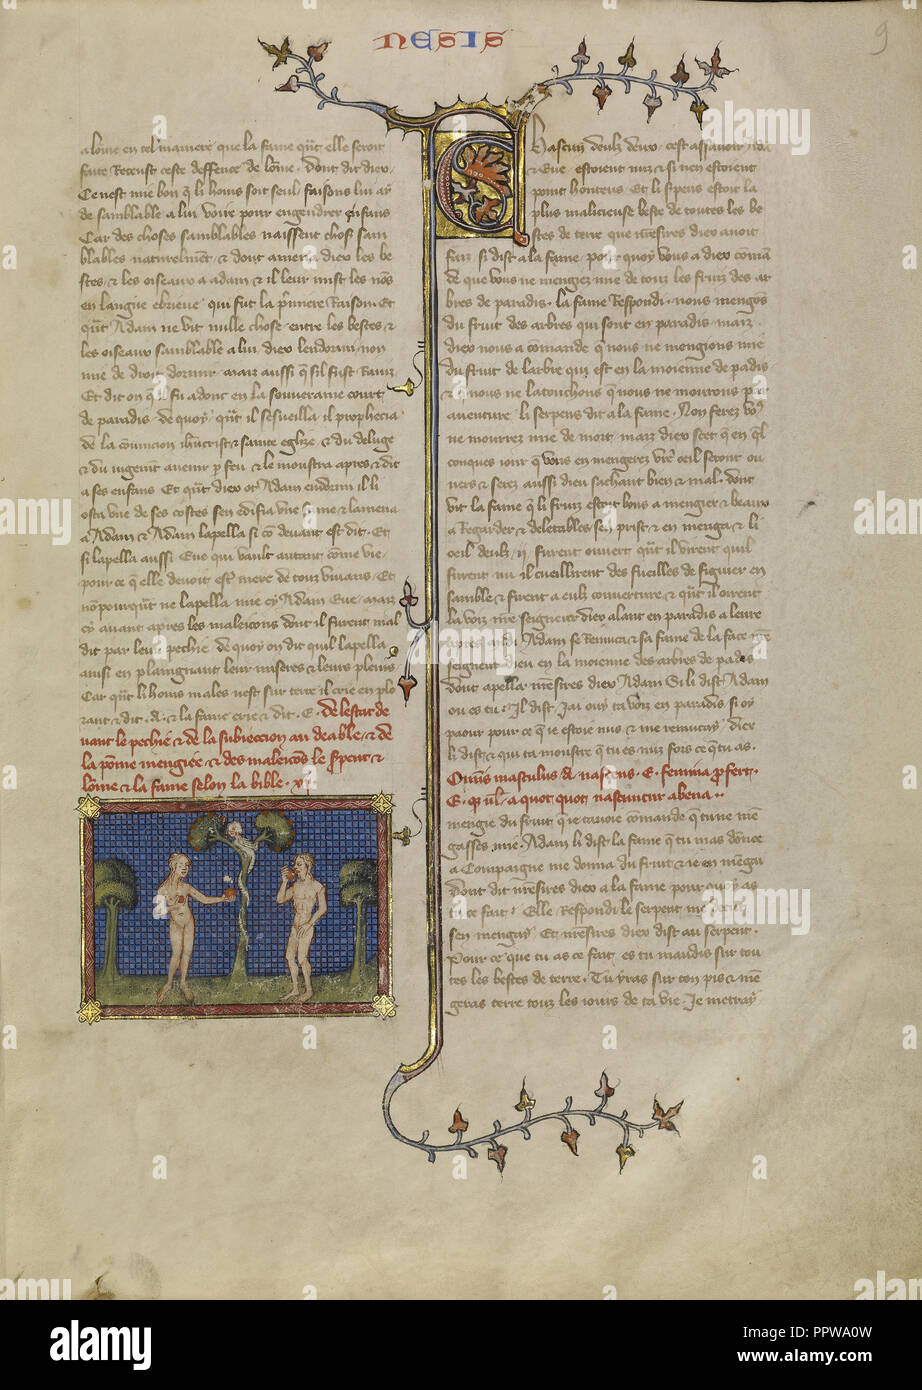 NESIS
9
a lome en tel maniere que la fame qñt elle seroit
faite Recenst ceste deffence de lome. dont dit diex.
Ce nest mie bon q̃ li homs soit seul. faisons lui ay
de samblable a lui. voire pour engendrer enfans
Car des choses samblables naissent choses sam
blables naturelmẽt & dont amena diex les be
stes & les oiseaux a adam & il leur mist les nõs
en langue ebrieue qui fut la p̃miere Raison. Et
qñt Adam ne vit nulle chose entre les bestes &
les oiseaux samblable a lui. diex lendormi non
mie de droit dormir. maiz aussi q̃ sil fust Raviz
Et dit on q̃ il fu adonc en la souveraine court
de paradis. de quoy qñt il sesueilla il prophecia
de la et sainte eglize & du deluge
& du iugemt auenir p feu & le monstra apres & dit
a ses enfans. Et qñt diex ot Adam endormi il li
osta vne de ses costes sen edifia vne fame & lamena
a Adam & Adam lapella si cõ devant est dit. Et
si lapella aussi Eue qui vault autant cõme vie.
pour ce q̃ elle deuoit estr mere de touz viuans. Et
nõpourqñt ne lapella mie cy Adam Eue. maiz
cy auant apres les maleicons dont il furent mal
dit par leur pechie. de quoy on dit quil lapella
ainsi en plaingnant leur miseres & leurs pleurs
Car qñt li homs males nest sur terre il crie en plo
rant & dit. A. & la fame crie & dit. E. de lestat de
uant le pechie & de la subieccion au deable. & de
la põme mengiee & des maleicõs le serpent &
lõme & la fame selon la bible. xv
Chascun deulz deux. cest assauoir Ada
& Eue. estoient nuz & si nen estoient
point honteus. Et li serpens estoit la
plus malicieuse beste de toutes les be
stes de terre que nr̃e sires diex auoit
faiz si dist a la fame. pour quoy vous a diex cõmã
de que vous ne mengiez mie de touz les fruiz des ar
bres de paradis. la fame Respondi. nous mengõs
du fruit des arbres qui sont en paradis. maiz
diex nous a comande q̃ nous ne mengions mie
du fruit de larbre qui est en la moienne de padis
& q̃ nous ne la touchons q̃ nous ne mourons p
auenture. li serpens dit a la fame. Non ferez vo9
ne mourrez mie de mort. maiz diex scet q̃ en q̃l
conques iour q̃ vous en mengerez vr̃e oeil seront ou
uers & serez aussi dieu sachant bien & mal. dont
vit la fame q̃ li fruiz estoit bons a mengier & beaux
a Regarder & delectables. sen prist & en menga & li
oeil deulz .ij. furent ouuert. qñt il virent quil
furent nu il cueillirent des fueilles de figuier en
samble & firent a eulz couuerture & qñt il oirent
la voiz nr̃e seigneur diex alant en paradis a leure
apres midi. Adam se Remuci & sa fame de la face nr̃e
seigneur dieu en la moienne des arbres de padis
dont apella nr̃e sires diex Adam. Si li dist. Adam
ou es tu. Il dist. Jai ouy ta voiz en paradis si oy
paour pour ce q̃ ie estoie nus & me remucay. diex
li dist & qui ta monstre q̃ tu es nuz fors ce q̃ tu as.
Omnis masculus A. nascens. E. femina profert.
E. uel. a. quot quot nascuntur ab eua.
mengie du fruit q̃ ie tauoie comande q̃ tu ne mẽ
gasses mie. Adam li dist. la fame q̃ tu mas donee
a Compaigne me donna du fruit & ie en mẽgu
dont dit nr̃e sires diex a la fame pour quoy as
tu ce fait? Elle Respondi. le serpent me deceut
sen menguy. Et nr̃e sires diex dist au serpent.
Pour ce que tu as ce fait. es tu maudis sur tou
tes les bestes de terre. Tu yras sur ton pis & mẽ
geras terre touz les iours de ta vie. Je metray
alamy
Image ID: PPWA0W
www.alamy.com